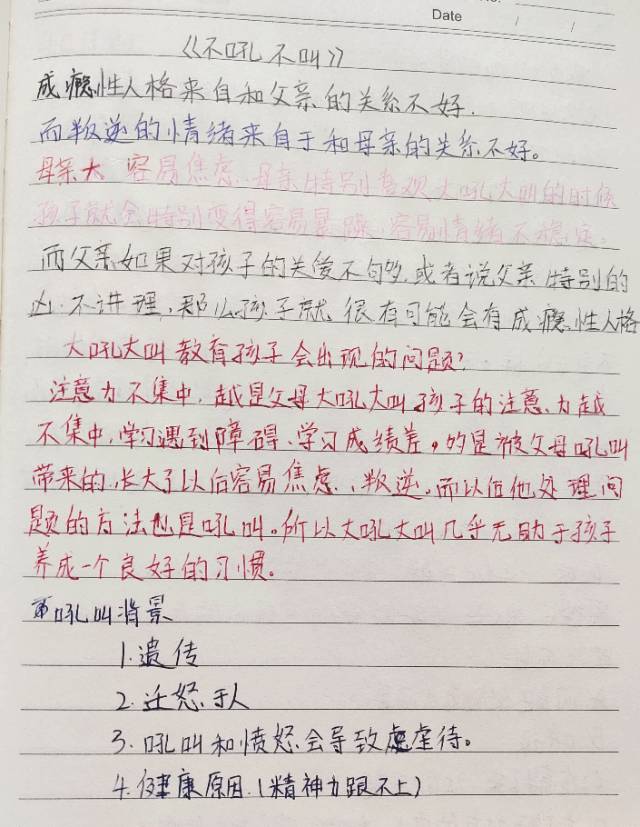 Date / /
《不吼不叫》
成瘾性人格来自和父亲的关系不好.
而叛逆的情绪来自于和母亲的关系不好。
母亲大 容易焦虑.母亲特别喜欢大吼大叫的时候
孩子就会特别变得容易暴躁,容易情绪不稳定。
而父亲如果对孩子的关爱不够,或者说父亲特别的
凶.不讲理,那么孩子就很有可能会有成瘾性人格
大吼大叫教育孩子会出现的问题?
注意力不集中,越是父母大吼大叫孩子的注意力越
不集中,学习遇到障碍、学习成绩差,的是被父母吼叫
带来的,长大了以后容易焦虑、叛逆,而以后他处理问
题的方法也是吼叫。所以大吼大叫几乎无助于孩子
养成一个良好的习惯。
吼叫背景
1.遗传
2.迁怒于人
3.吼叫和愤怒会导致虐待。
4.健康原因.(精神力跟不上)